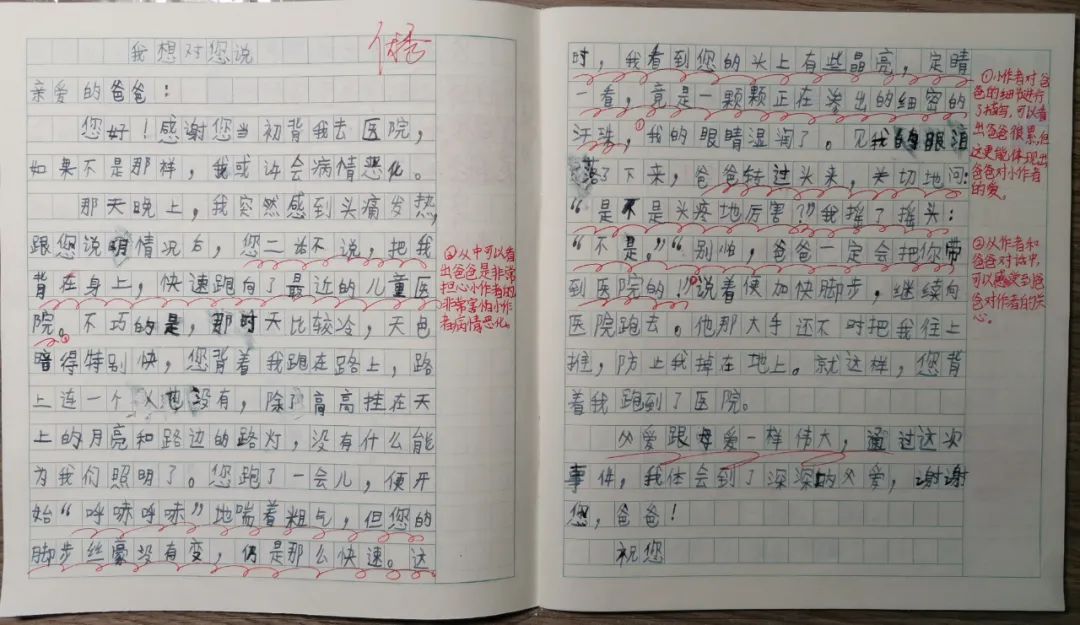 我想对您说
亲爱的爸爸：
您好！感谢您当初背我去医院，
如果不是那样，我或许会病情恶化。
那天晚上，我突然感到头痛发热，
跟您说明情况后，您二话不说，把我
背在身上，快速跑向了最近的儿童医
院。不巧的是，那时天比较冷，天色
暗得特别快，您背着我跑在路上，路
上连一个人也没有，除了高高挂在天
上的月亮和路边的路灯，没有什么能
为我们照明了。您跑了一会儿，便开
始“呼哧呼哧”地喘着粗气，但您的
脚步丝毫没有变，仍是那么快速。这
②从中可以看
出爸爸是非常
担心小作者的，
非常害怕小作
者病情恶化。
时，我看到您的头上有些晶亮，定睛
一看，竟是一颗颗正在渗出的细密的
汗珠，①我的眼睛湿润了。见我的眼泪
落了下来，爸爸转过头来，关切地问：
“是不是头疼地厉害？”我摇了摇头：
“不是。”“别怕，爸爸一定会把你带
到医院的！”说着便加快脚步，继续向
医院跑去。他那大手还不时把我往上
推，防止我掉在地上。就这样，您背
着我跑到了医院。
父爱跟母爱一样伟大，通过这次
事件，我体会到了深深的父爱，谢谢
您，爸爸！
祝您
①小作者对爸
爸的细节进行
了描写，可以看
出爸爸很累，但
这更能体现出
爸爸对小作者
的爱。
③从作者和
爸爸对话中，
可以感受到爸
爸对作者的关
心。